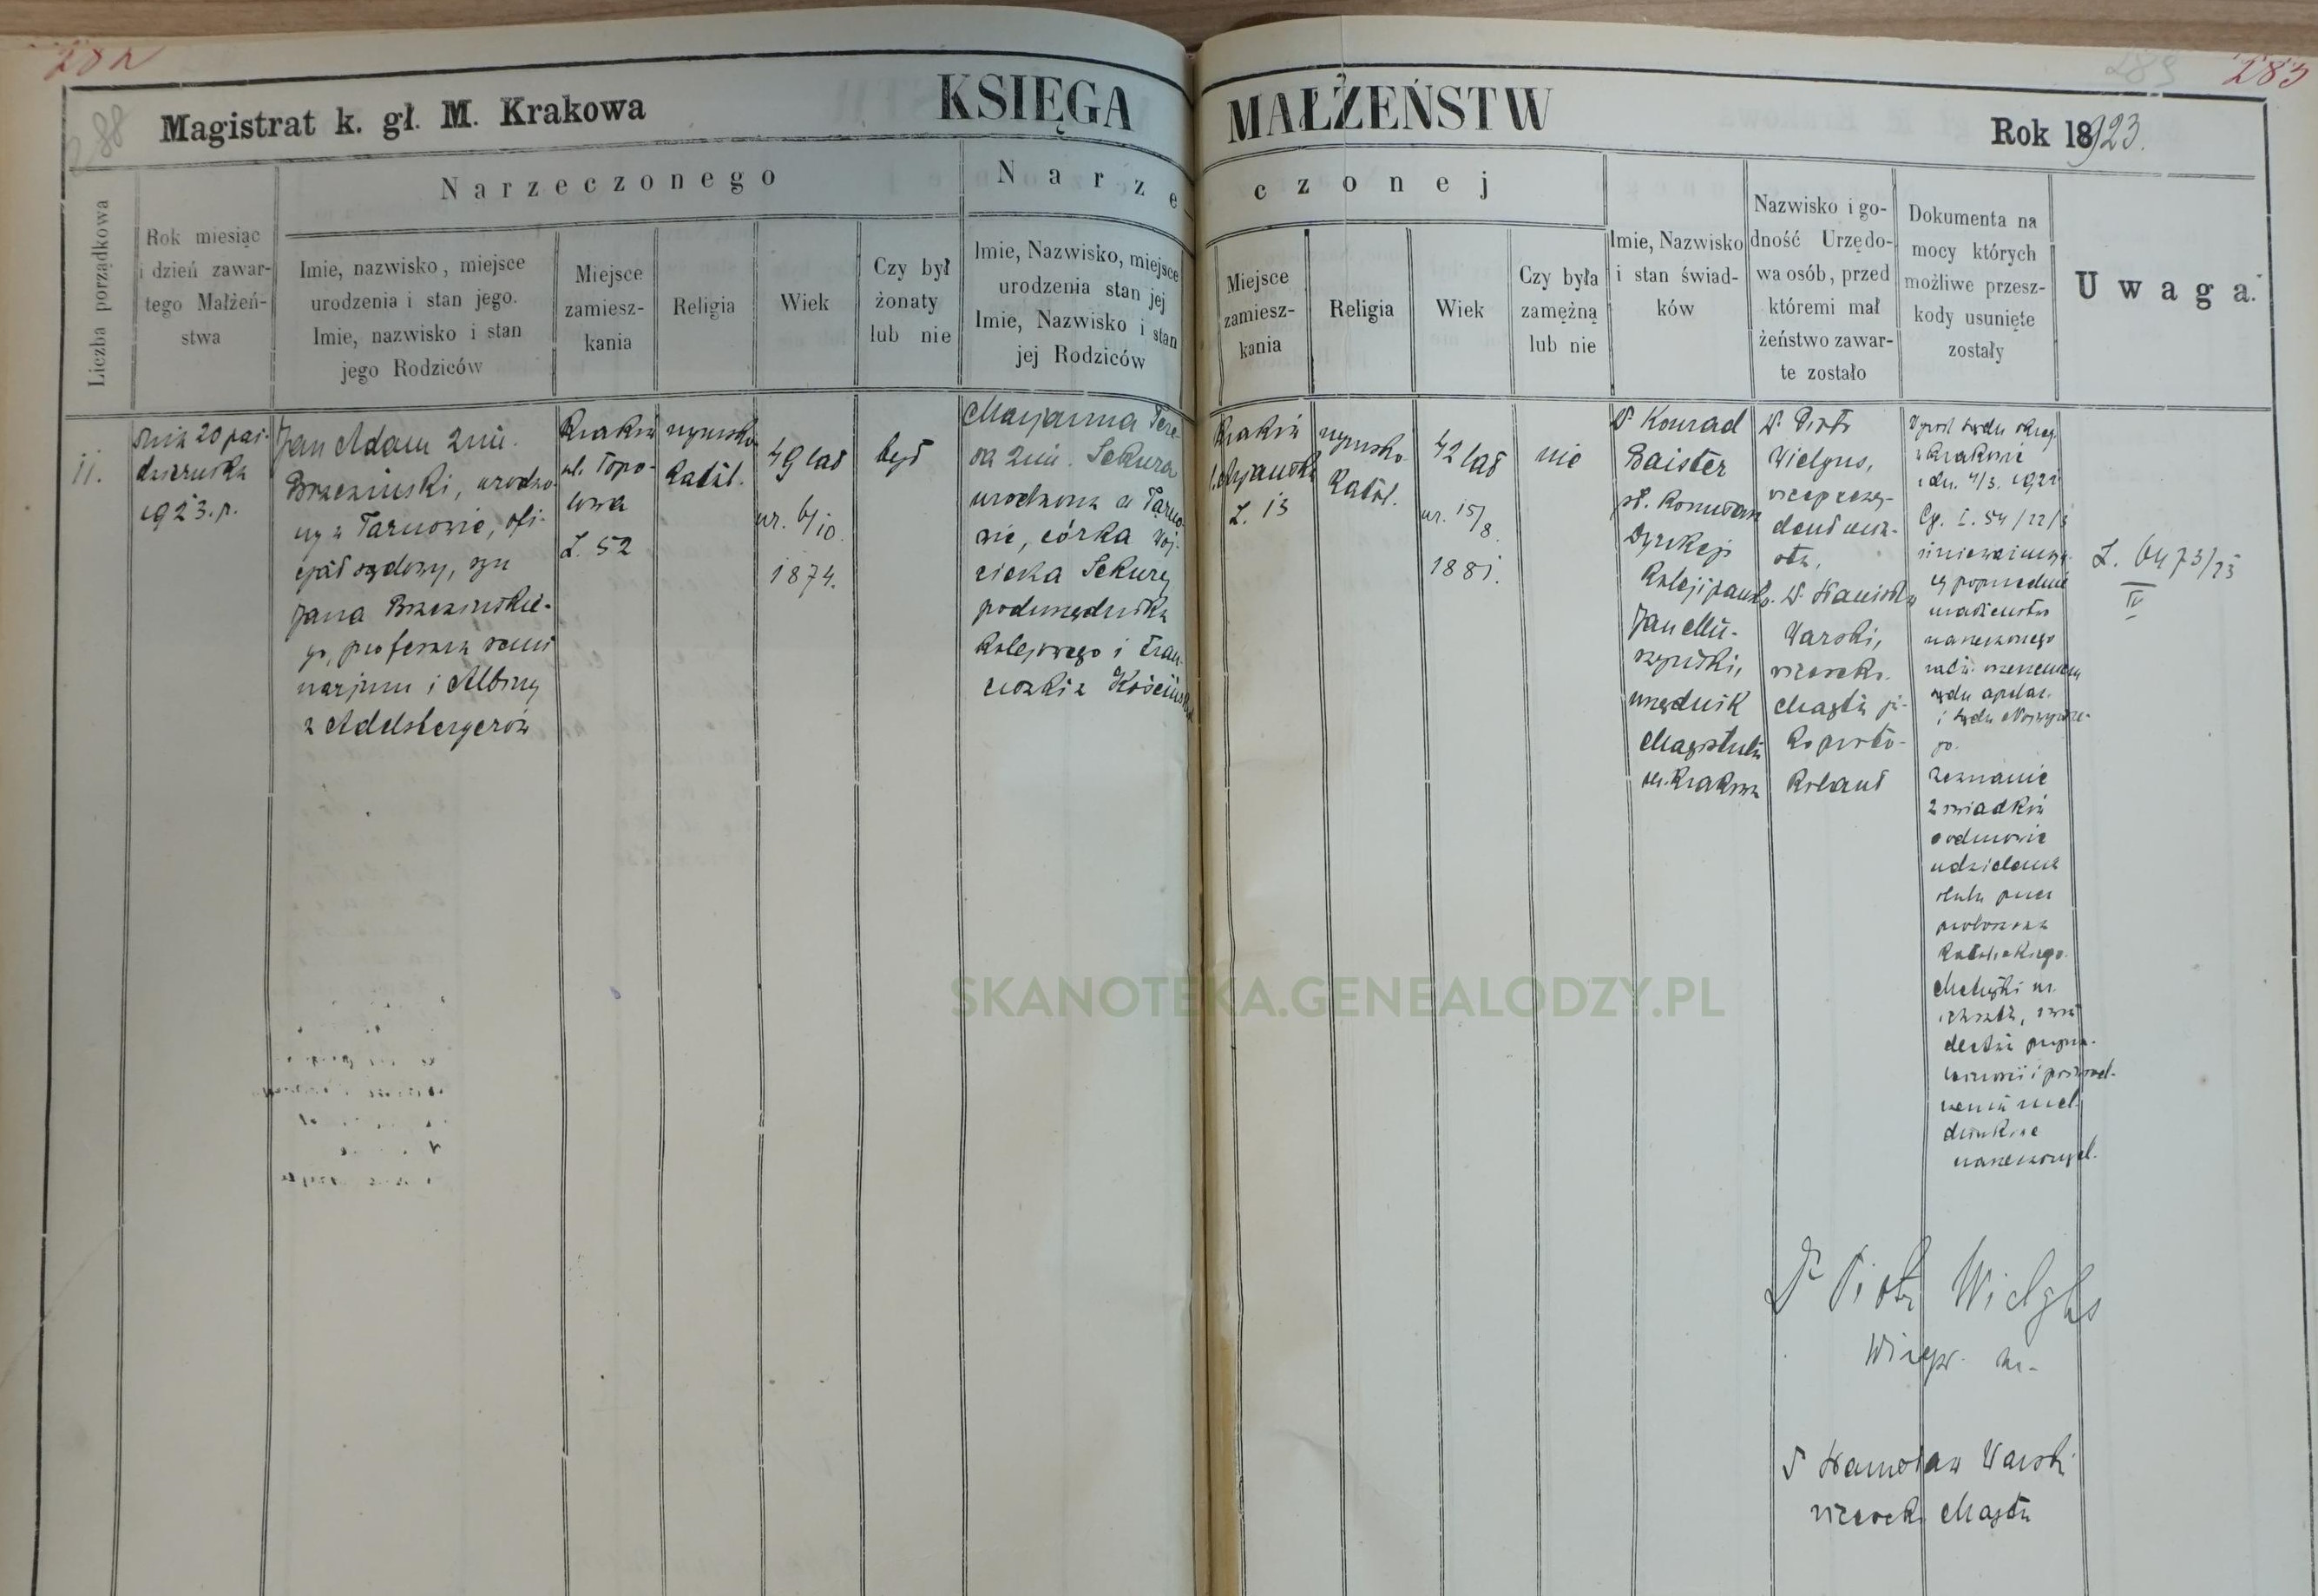 282
288
Magistrat k. gł. M. Krakowa
KSIĘGA
MAŁŻEŃSTW
Rok 18923.
289
283
Liczba porządkowa
Rok miesiąc
i dzień zawar-
tego Małżeń-
stwa
Narzeczonego
Imie, nazwisko, miejsce
urodzenia i stan jego.
Imie, nazwisko i stan
jego Rodziców
Miejsce
zamiesz-
kania
Religia
Wiek
Czy był
żonaty
lub nie
Narze
czonej
Imie, Nazwisko, miejsce
urodzenia stan jej
Imie, Nazwisko i stan
jej Rodziców
Miejsce
zamiesz-
kania
Religia
Wiek
Czy była
zamężną
lub nie
Imie, Nazwisko
i stan świad-
ków
Nazwisko i go-
dność Urzędo-
wa osób, przed
któremi mał
żeństwo zawar-
te zostało
Dokumenta na
mocy których
możliwe przesz-
kody usunięte
zostały
Uwaga.
11.
dnia 20 paź-
dziernika
1923. r.
Jan Adam 2im.
Brzeziński, urodzo-
ny w Tarnowie, ofi-
cjał sądowy, syn
Jana Brzezińskie-
go, profesora semi
narjum i Albiny
z Adelsbergerów
Kraków
ul. Topo-
lowa
L. 52
rzymsko
katol.
49 lat
ur. 6/10.
1874.
był
Marjanna Tere-
sa 2im. Sekura
urodzona w Tarno-
wie, córka Woj-
ciecha Sekury
podurzędnika
kolejowego i Fran-
ciszki z
Kraków
L. 13
rzymsko
katol.
42 lat
ur. 15/8.
1881.
nie
Dr Konrad
Baister
st.
Dyrekcji
Kolei państw.
Jan
urzędnik
Magistratu
m. Krakowa
Dr. Piotr
Wielgus,
wiceprezy-
dent mia-
sta,
Dr. Stanisław
Warski,
wicesekr.
Magistr. ja-
ko proto-
kolant
Wyrok sądu okręg.
w Krakowie
z dn. 4/3. 1922
Cg. I. 54/22/3
unieważniają-
cy poprzednie
małżeństwo
narzeczonego
sądu apelac.
i sądu Najwyższe-
go.
zeznanie
2 świadków
o odmowie
udzielenia
ślubu przez
proboszcza
katolickiego.
Metryki ur.
i chrztu,
narzeczonych.
L. 6473/23
IV
SKANOTEKA.GENEALODZY.PL
Dr Piotr Wielgus
Wicepr. m.
Dr Stanisław Warski
wicesekr. Magistr.